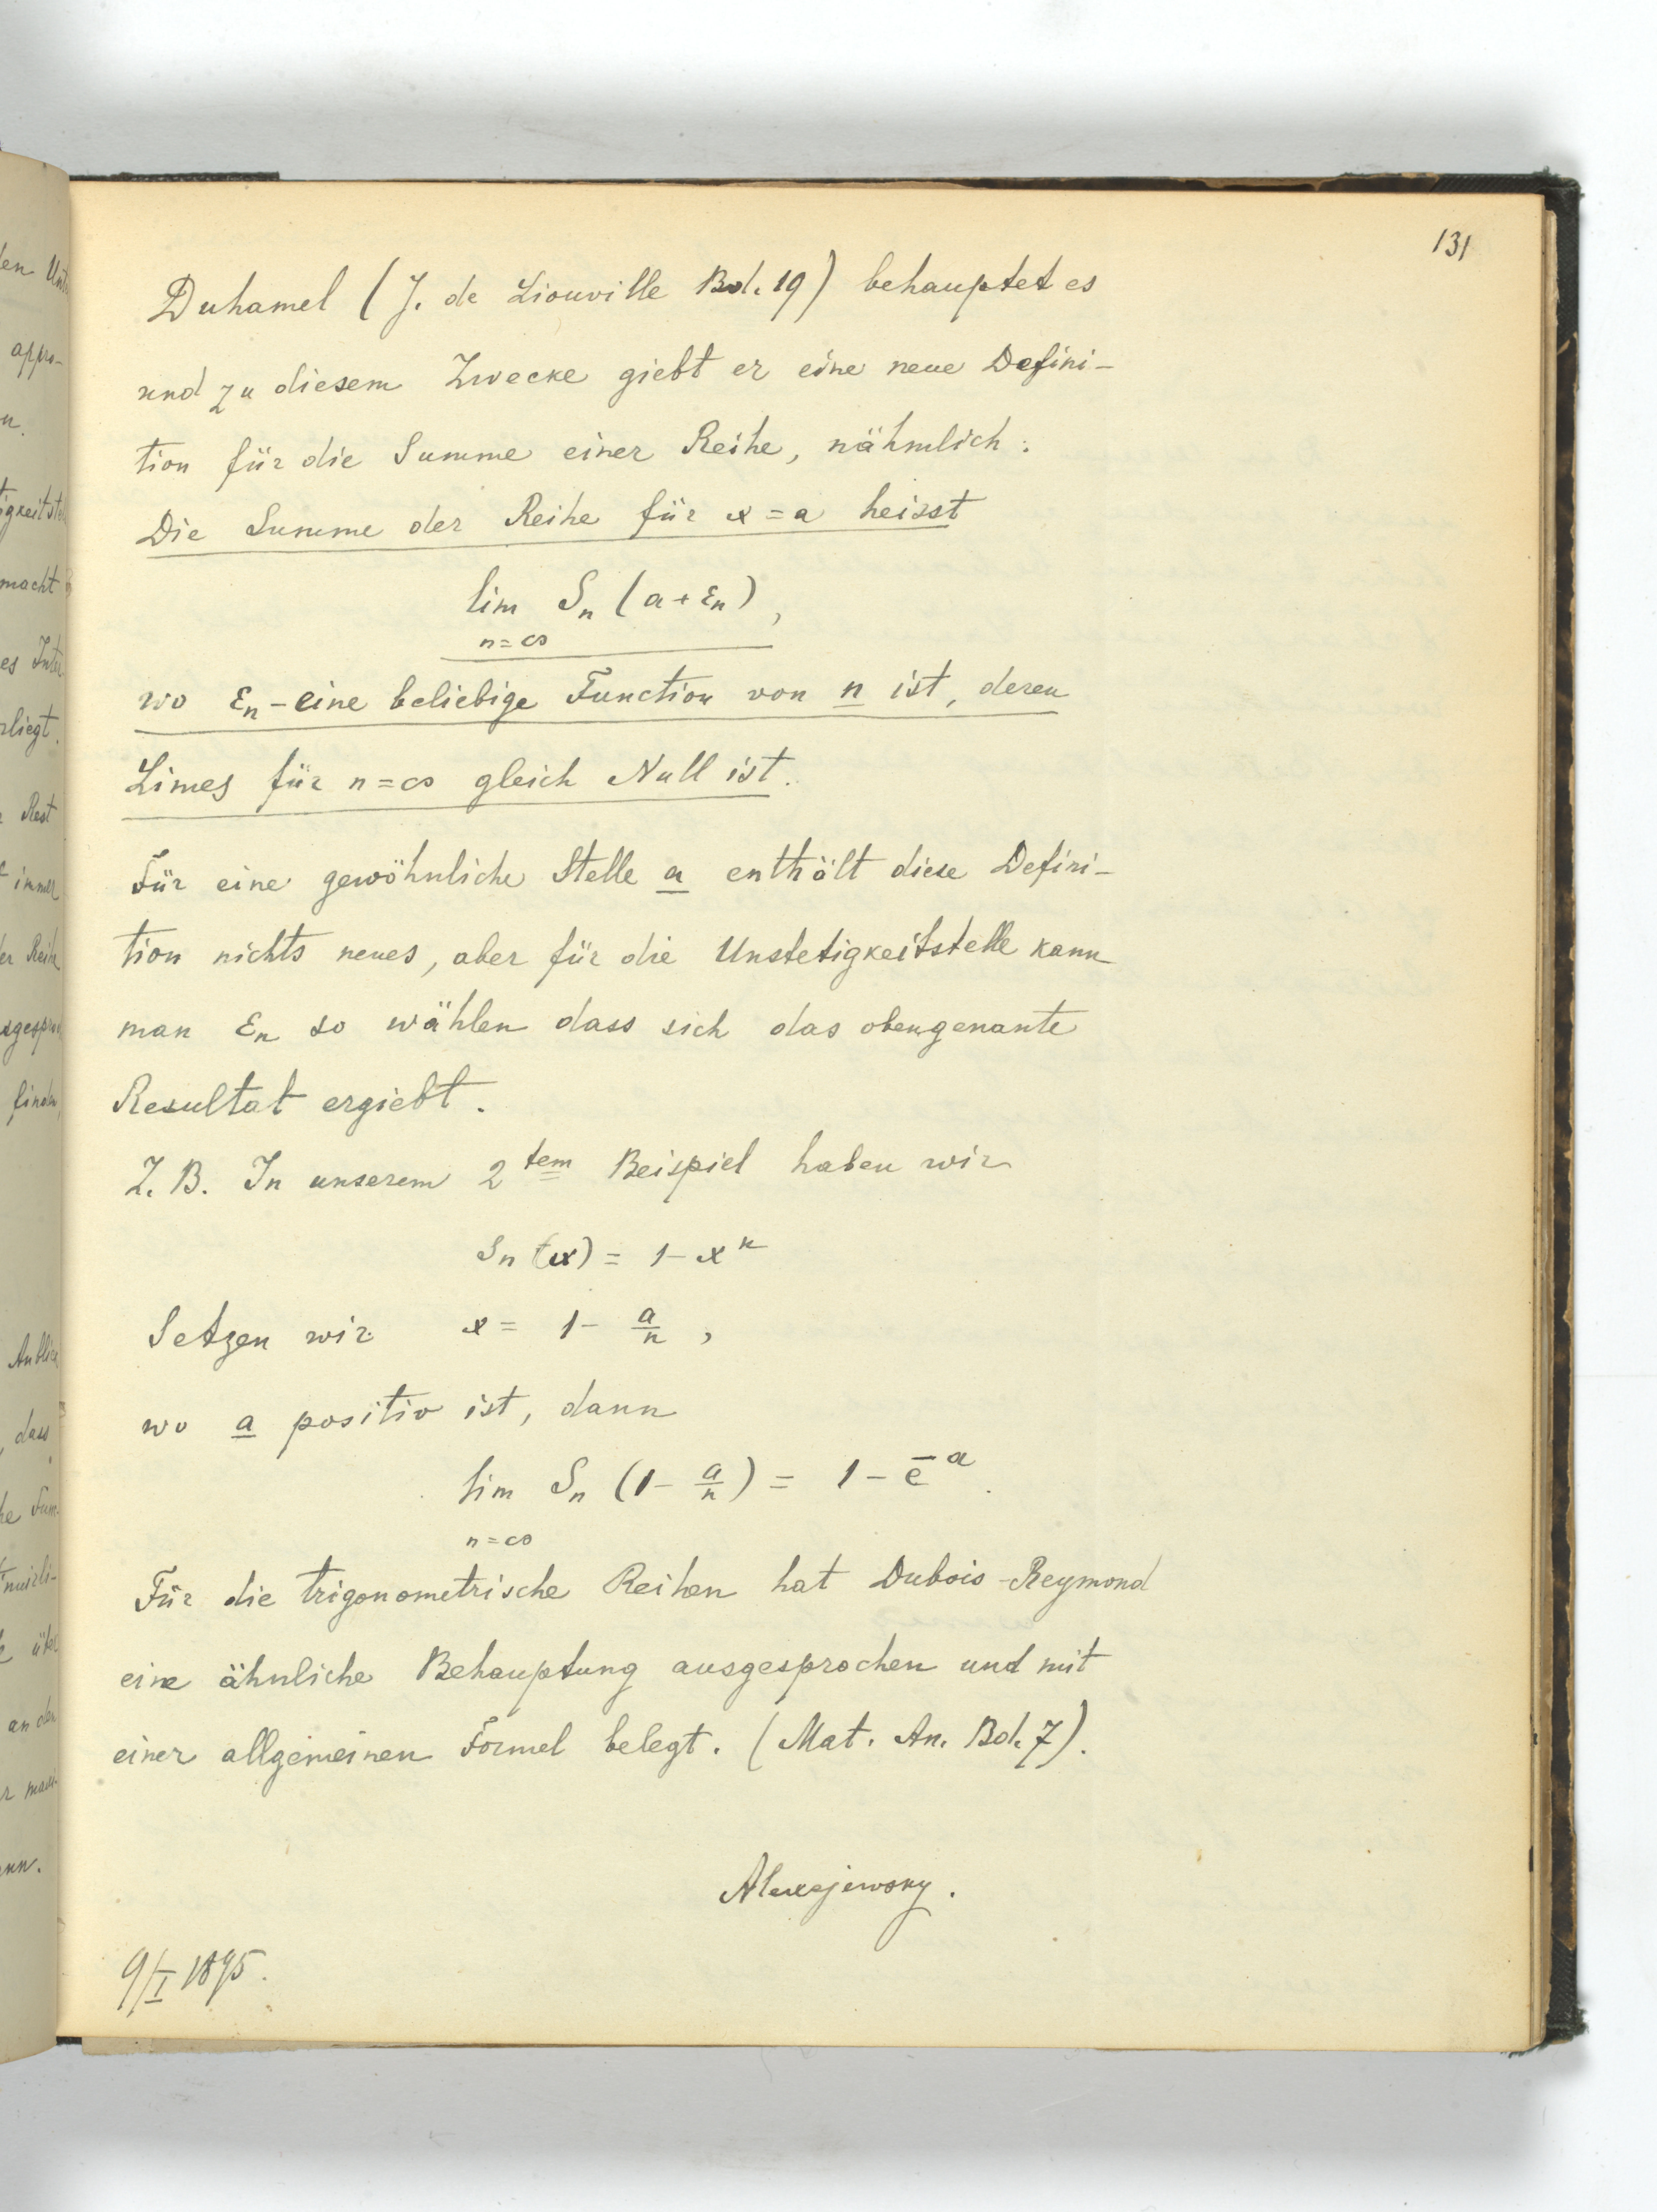 131
Duhamel (J. de Liouville Bd. 19) behauptet es
und zu diesem Zwecke giebt er eine neue Defini-
tion für die Summe einer Reihe, nähmlich:
Die Summe der Reihe für x = a heisst
lim Sₙ (a + εₙ),
n = ∞
wo εₙ - eine beliebige Function von n ist, deren
Limes für n = ∞ gleich Null ist.
Für eine gewöhnliche Stelle a enthält diese Defini-
tion nichts neues, aber für die Unstetigkeitstelle kann
man εₙ so wählen dass sich das obengenante
Resultat ergiebt.
Z. B. In unserem 2tem Beispiel haben wir
Sₙ (x) = 1 - xⁿ
Setzen wir x = 1 - a/n,
wo a positiv ist, dann
lim Sₙ (1 - a/n) = 1 - e⁻ᵃ.
n = ∞
Für die trigonometrische Reihen hat Dubois-Reymond
eine ähnliche Behauptung ausgesprochen und mit
einer allgemeinen Formel belegt. (Mat. An. Bd. 7).
Alexejewsky.
9/I 1895.